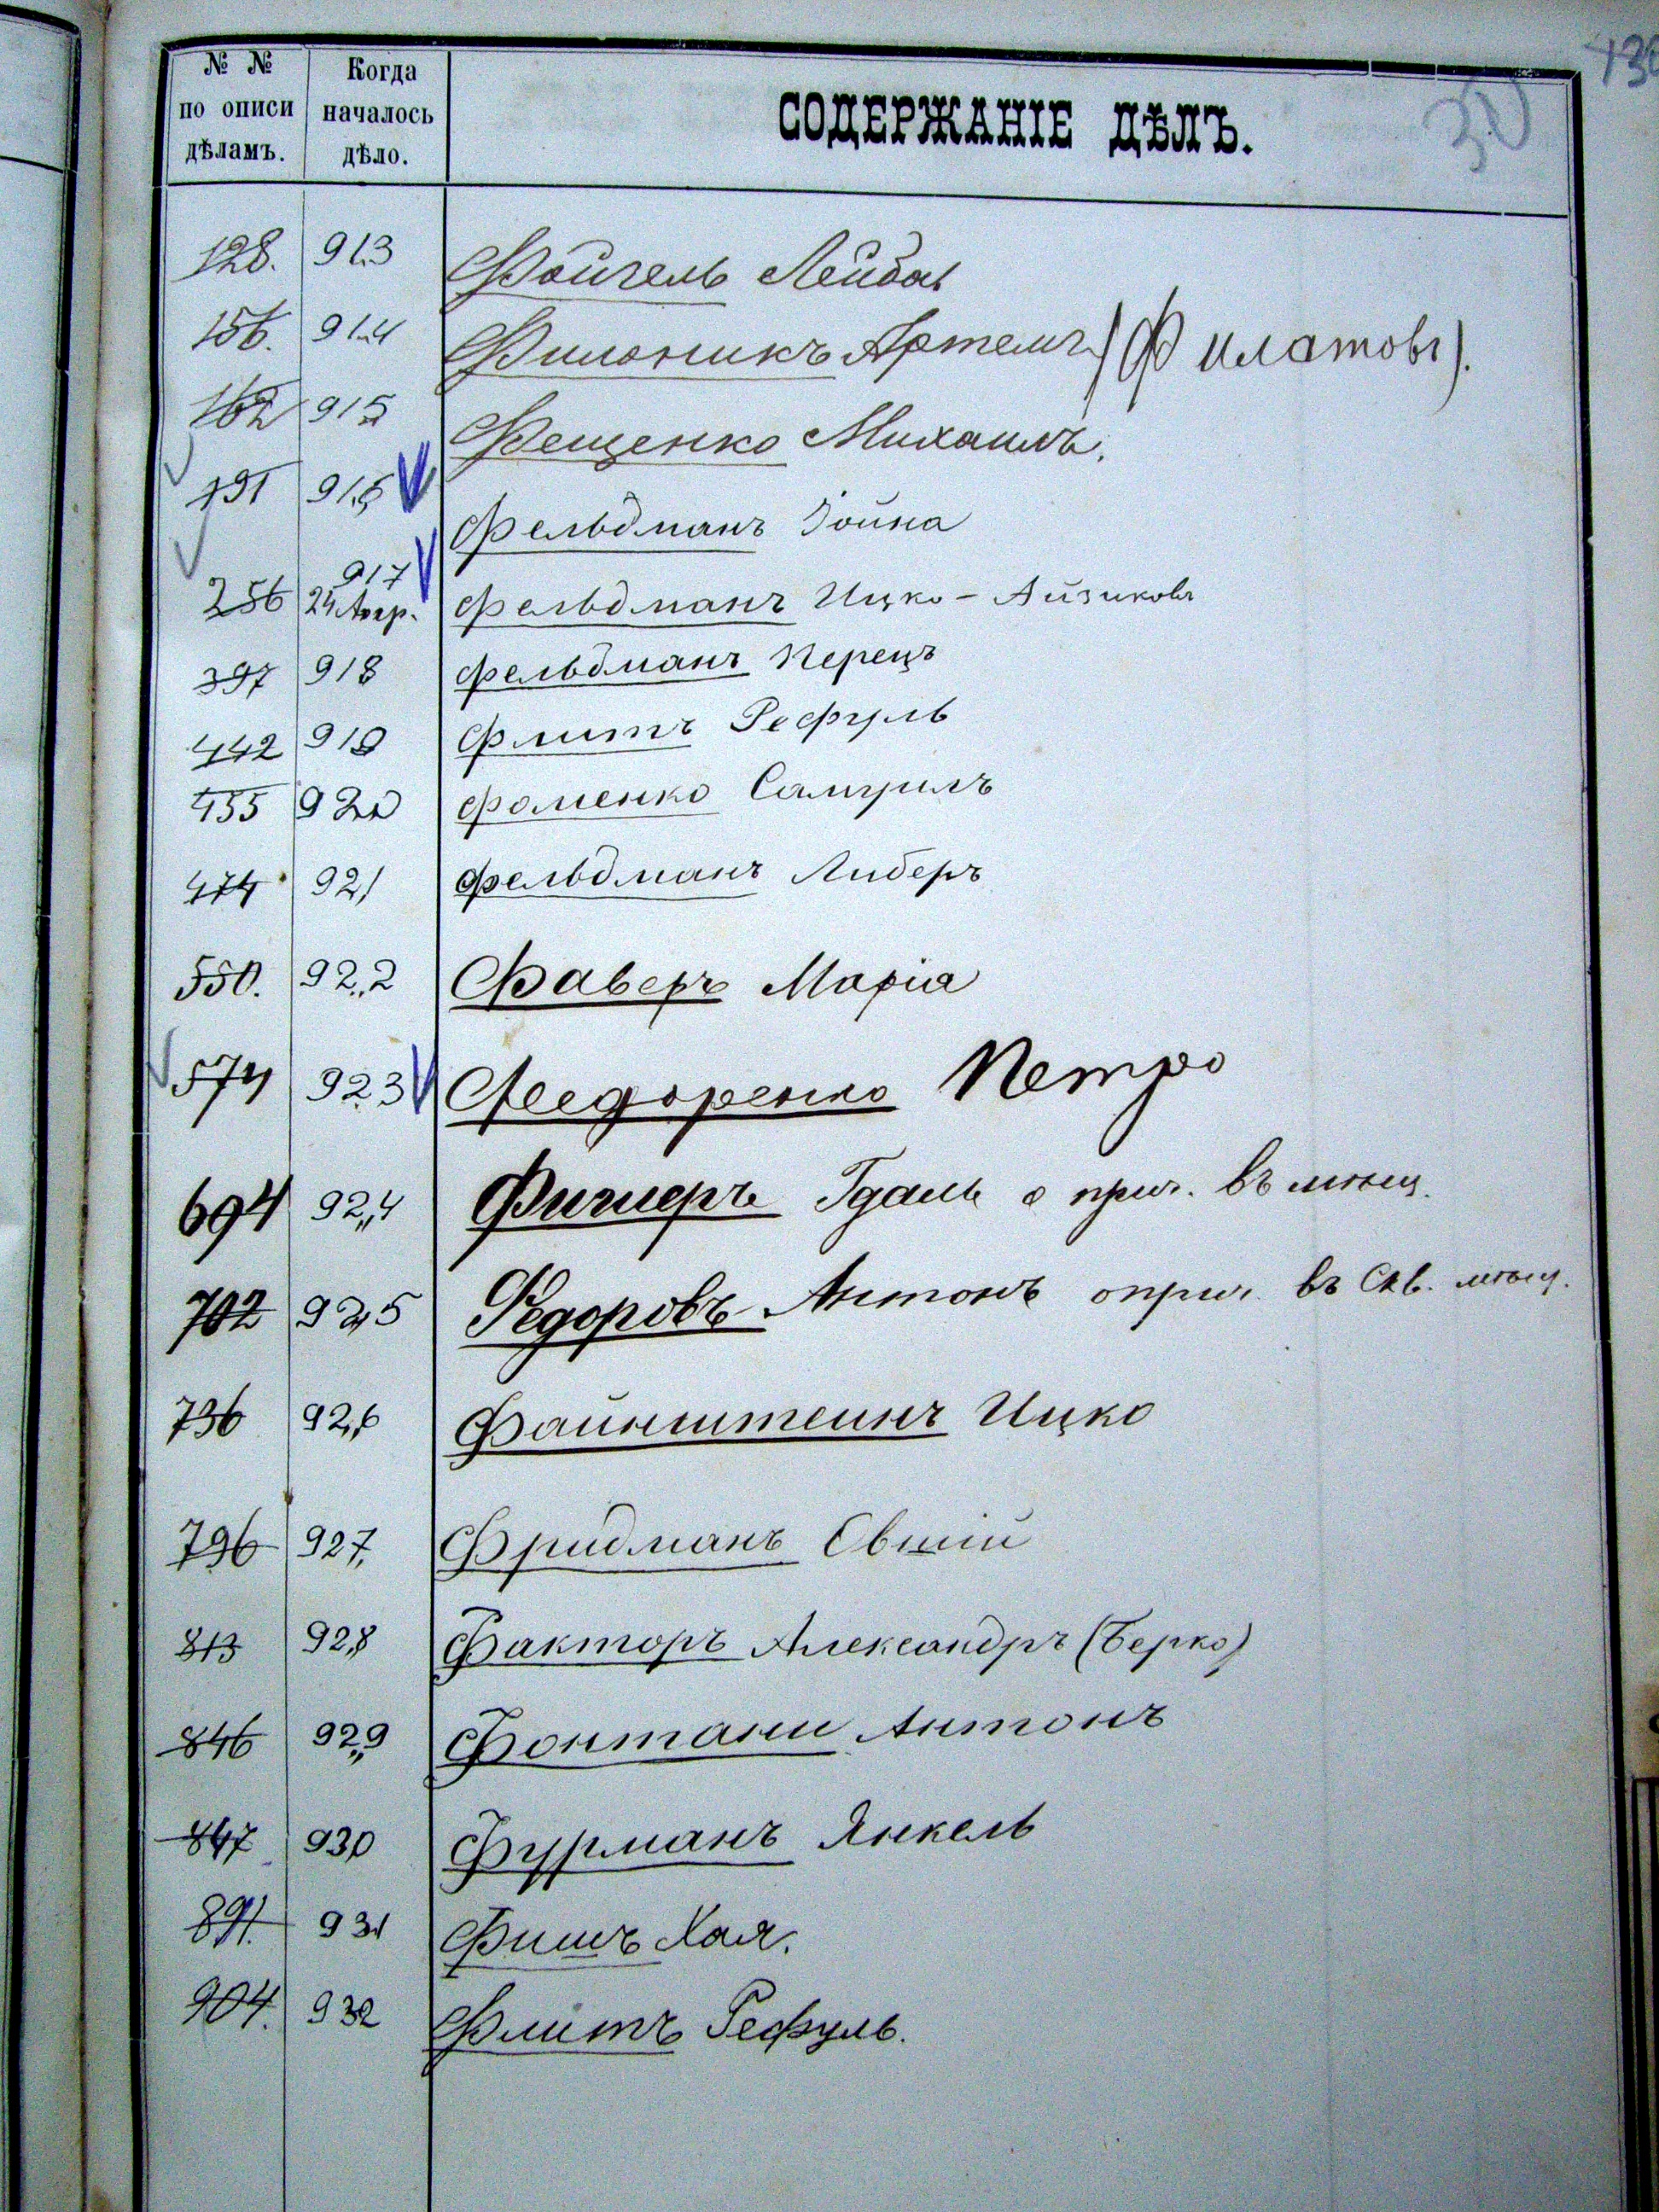 130
30
№ № по описи дѣламъ. Когда началось дѣло. СОДЕРЖАНІЕ ДѢЛЪ.
128. 913 Фойгель Лейба
156. 914 Филоникъ Артемъ (Филатовъ).
162 915 Фещенко Михаилъ.
191 916 Фельдманъ Іойна
256 917 24 Авгр. Фельдманъ Ицко-Айзиковъ
397 918 Фельдманъ Перецъ
442 919 Флитъ Рефуль
455 920 Фоменко Самуилъ
474 921 Фельдманъ Либеръ
550. 922 Фаверъ Марія
574 923 Федоренко Петро
694 924 Фигнеръ Гдаль о прич. въ мѣщ.
702 925 Федоровъ Антонъ о прич. въ Скв. мѣщ.
736 926 Файнштейнъ Ицко
796 927 Фридманъ Овшій
813 928 Факторъ Александръ (Берко)
846 929 Фонтани Антонъ
847 930 Фурманъ Янкель
891. 931 Фишъ Хая.
904. 932 Флитъ Рефуль.